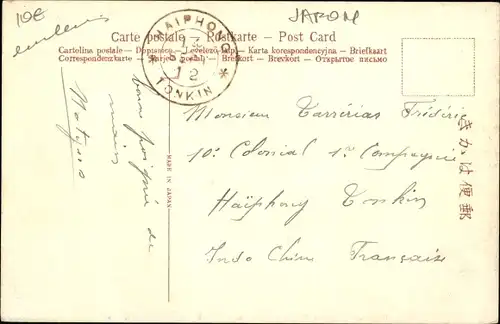 10€
JAPON
Carte postale – Postkarte – Post Card
Cartolina postale – Dopisnice – Levelező-Lap – Karta korespondencyjna – Briefkaart
Correspondenzkarte – Tarjeta postal – Brefkort – Brevkort – Открытое письмо
HAIPHONG
TONKIN
Monsieur Carrérias Frédéric
10e Colonial 1re Compagnie
Haïphong Tonkin
Indo Chine Française
bonne poignée de
main
MADE IN JAPAN
郵便はかき